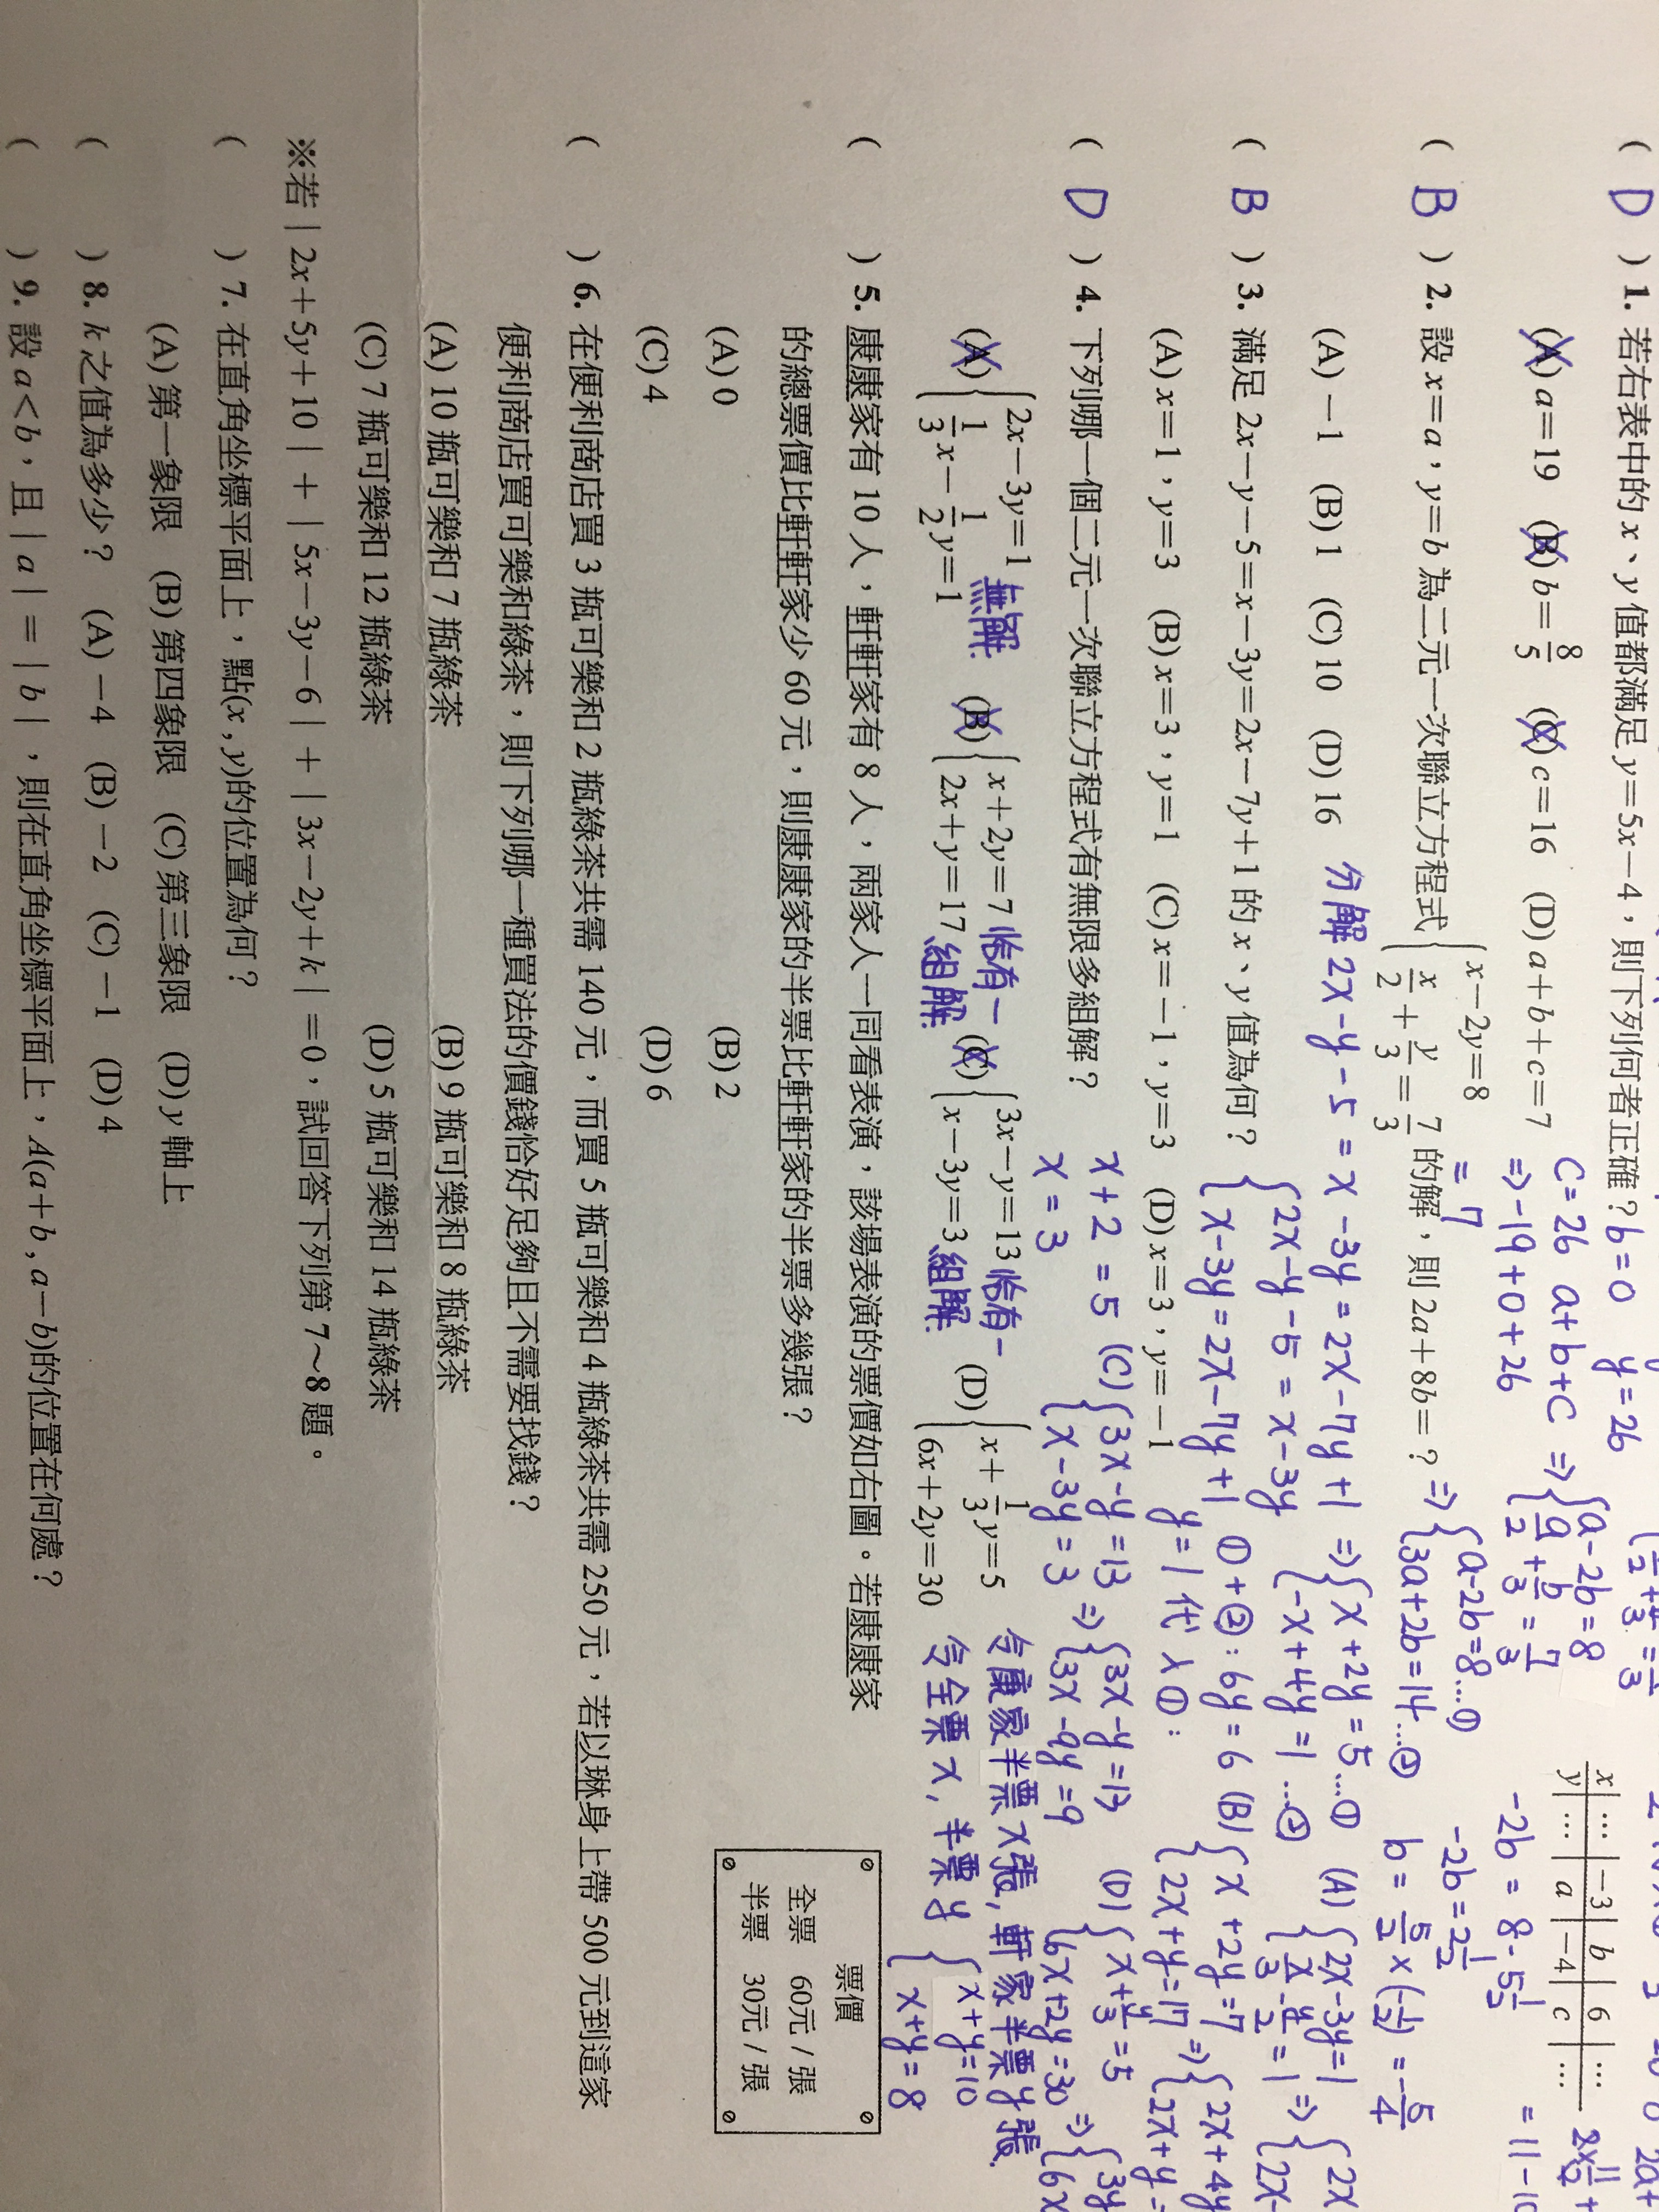 ( D ) 1. 若右表中的 x、y 值都滿足 y=5x-4，則下列何者正確？ b=0 y=26
(A) a=19 (B) b=8/5 (C) c=16 (D) a+b+c=7
c=26 a+b+c
⇒-19+0+26
=7
x … -3 b 6 …
y … a -4 c …
( B ) 2. 設 x=a，y=b 為二元一次聯立方程式 { x-2y=8 x/2+y/3=7/3 的解，則 2a+8b=？
(A) -1 (B) 1 (C) 10 (D) 16
⇒ { a-2b=8 a/2+b/3=7/3
⇒ { a-2b=8…① 3a+2b=14…②
-2b=8-5 1/2
-2b=2 1/2
b=5/2×(-1/2)=-5/4
( B ) 3. 滿足 2x-y-5=x-3y=2x-7y+1 的 x、y 值為何？
(A) x=1，y=3 (B) x=3，y=1 (C) x=-1，y=3 (D) x=3，y=-1
分解 2x-y-5=x-3y=2x-7y+1 ⇒ { x+2y=5…① -x+4y=1…②
{ 2x-y-5=x-3y x-3y=2x-7y+1
①+②: 6y=6
y=1 代入①:
x+2=5
x=3
( D ) 4. 下列哪一個二元一次聯立方程式有無限多組解？
(A) { 2x-3y=1 1/3x-1/2y=1 無解. (B) { x+2y=7 2x+y=17 恰有一組解. (C) { 3x-y=13 x-3y=3 恰有一組解. (D) { x+1/3y=5 6x+2y=30
(A) { 2x-3y=1 x/3-y/2=1 ⇒
(B) { x+2y=7 2x+y=17 ⇒
(C) { 3x-y=13 x-3y=3 ⇒ { 3x-y=13 3x-9y=9
(D) { x+y/3=5 6x+2y=30 ⇒
( ) 5. 康康家有 10 人，軒軒家有 8 人，兩家人一同看表演，該場表演的票價如右圖。若康康家
的總票價比軒軒家少 60 元，則康康家的半票比軒軒家的半票多幾張？
(A) 0 (B) 2
(C) 4 (D) 6
令康家半票x張, 軒家半票y張.
令全票x, 半票y { x+y=10 x+y=8
票價
全票 60元 / 張
半票 30元 / 張
( ) 6. 在便利商店買 3 瓶可樂和 2 瓶綠茶共需 140 元，而買 5 瓶可樂和 4 瓶綠茶共需 250 元，若以琳身上帶 500 元到這家
便利商店買可樂和綠茶，則下列哪一種買法的價錢恰好足夠且不需要找錢？
(A) 10 瓶可樂和 7 瓶綠茶 (B) 9 瓶可樂和 8 瓶綠茶
(C) 7 瓶可樂和 12 瓶綠茶 (D) 5 瓶可樂和 14 瓶綠茶
※若｜2x+5y+10｜+｜5x-3y-6｜+｜3x-2y+k｜=0，試回答下列第 7～8 題。
( ) 7. 在直角坐標平面上，點(x , y)的位置為何？
(A) 第一象限 (B) 第四象限 (C) 第三象限 (D) y 軸上
( ) 8. k 之值為多少？ (A) -4 (B) -2 (C) -1 (D) 4
( ) 9. 設 a<b，且｜a｜=｜b｜，則在直角坐標平面上，A(a+b , a-b)的位置在何處？